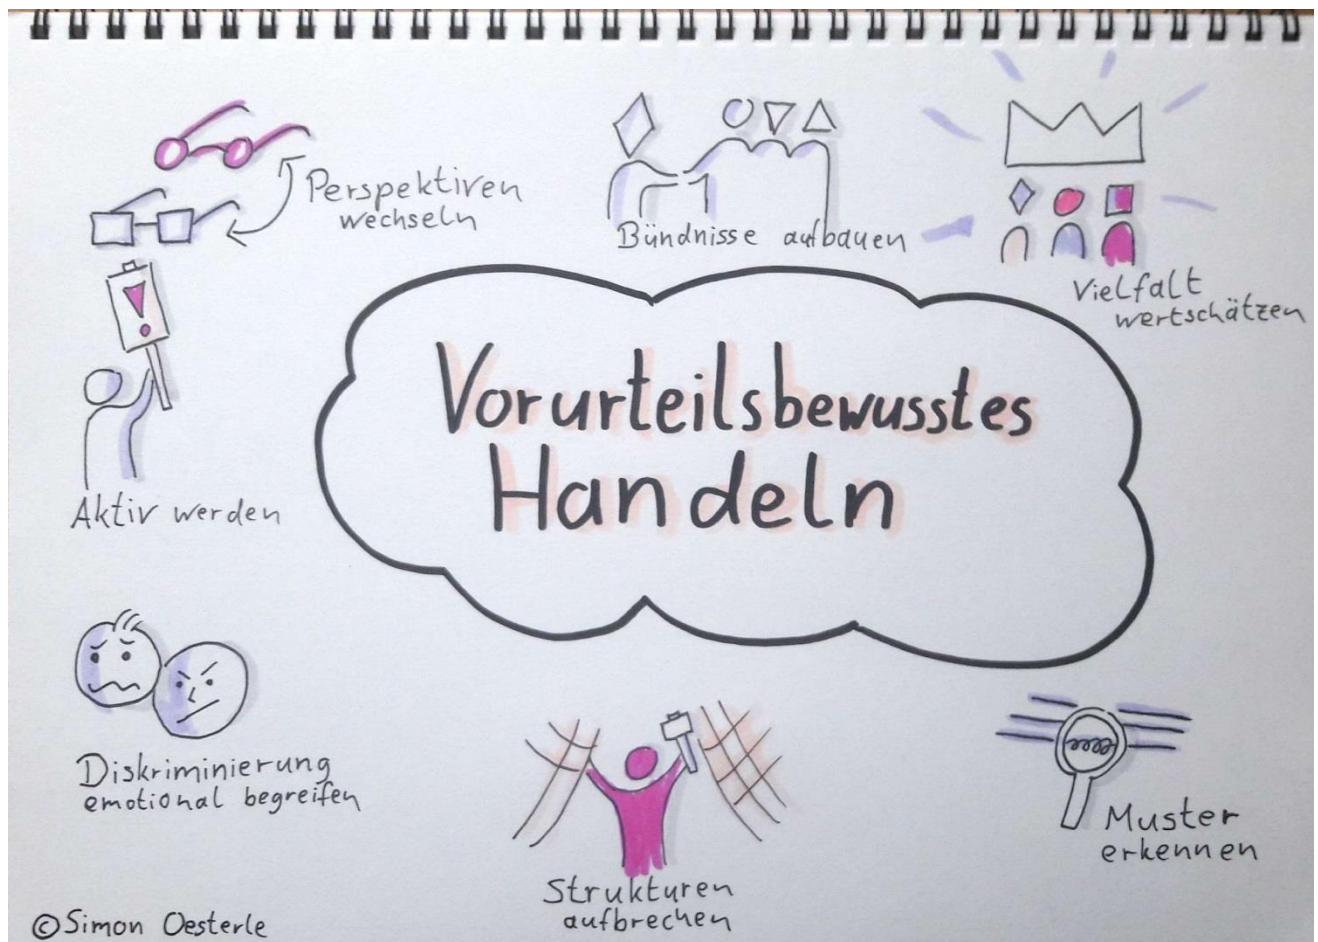 Perspektiven
wechseln
Bündnisse aufbauen
Vielfalt
wertschätzen
Vorurteilsbewusstes
Handeln
Aktiv werden
Diskriminierung
emotional begreifen
Strukturen
aufbrechen
Muster
erkennen
©Simon Oesterle